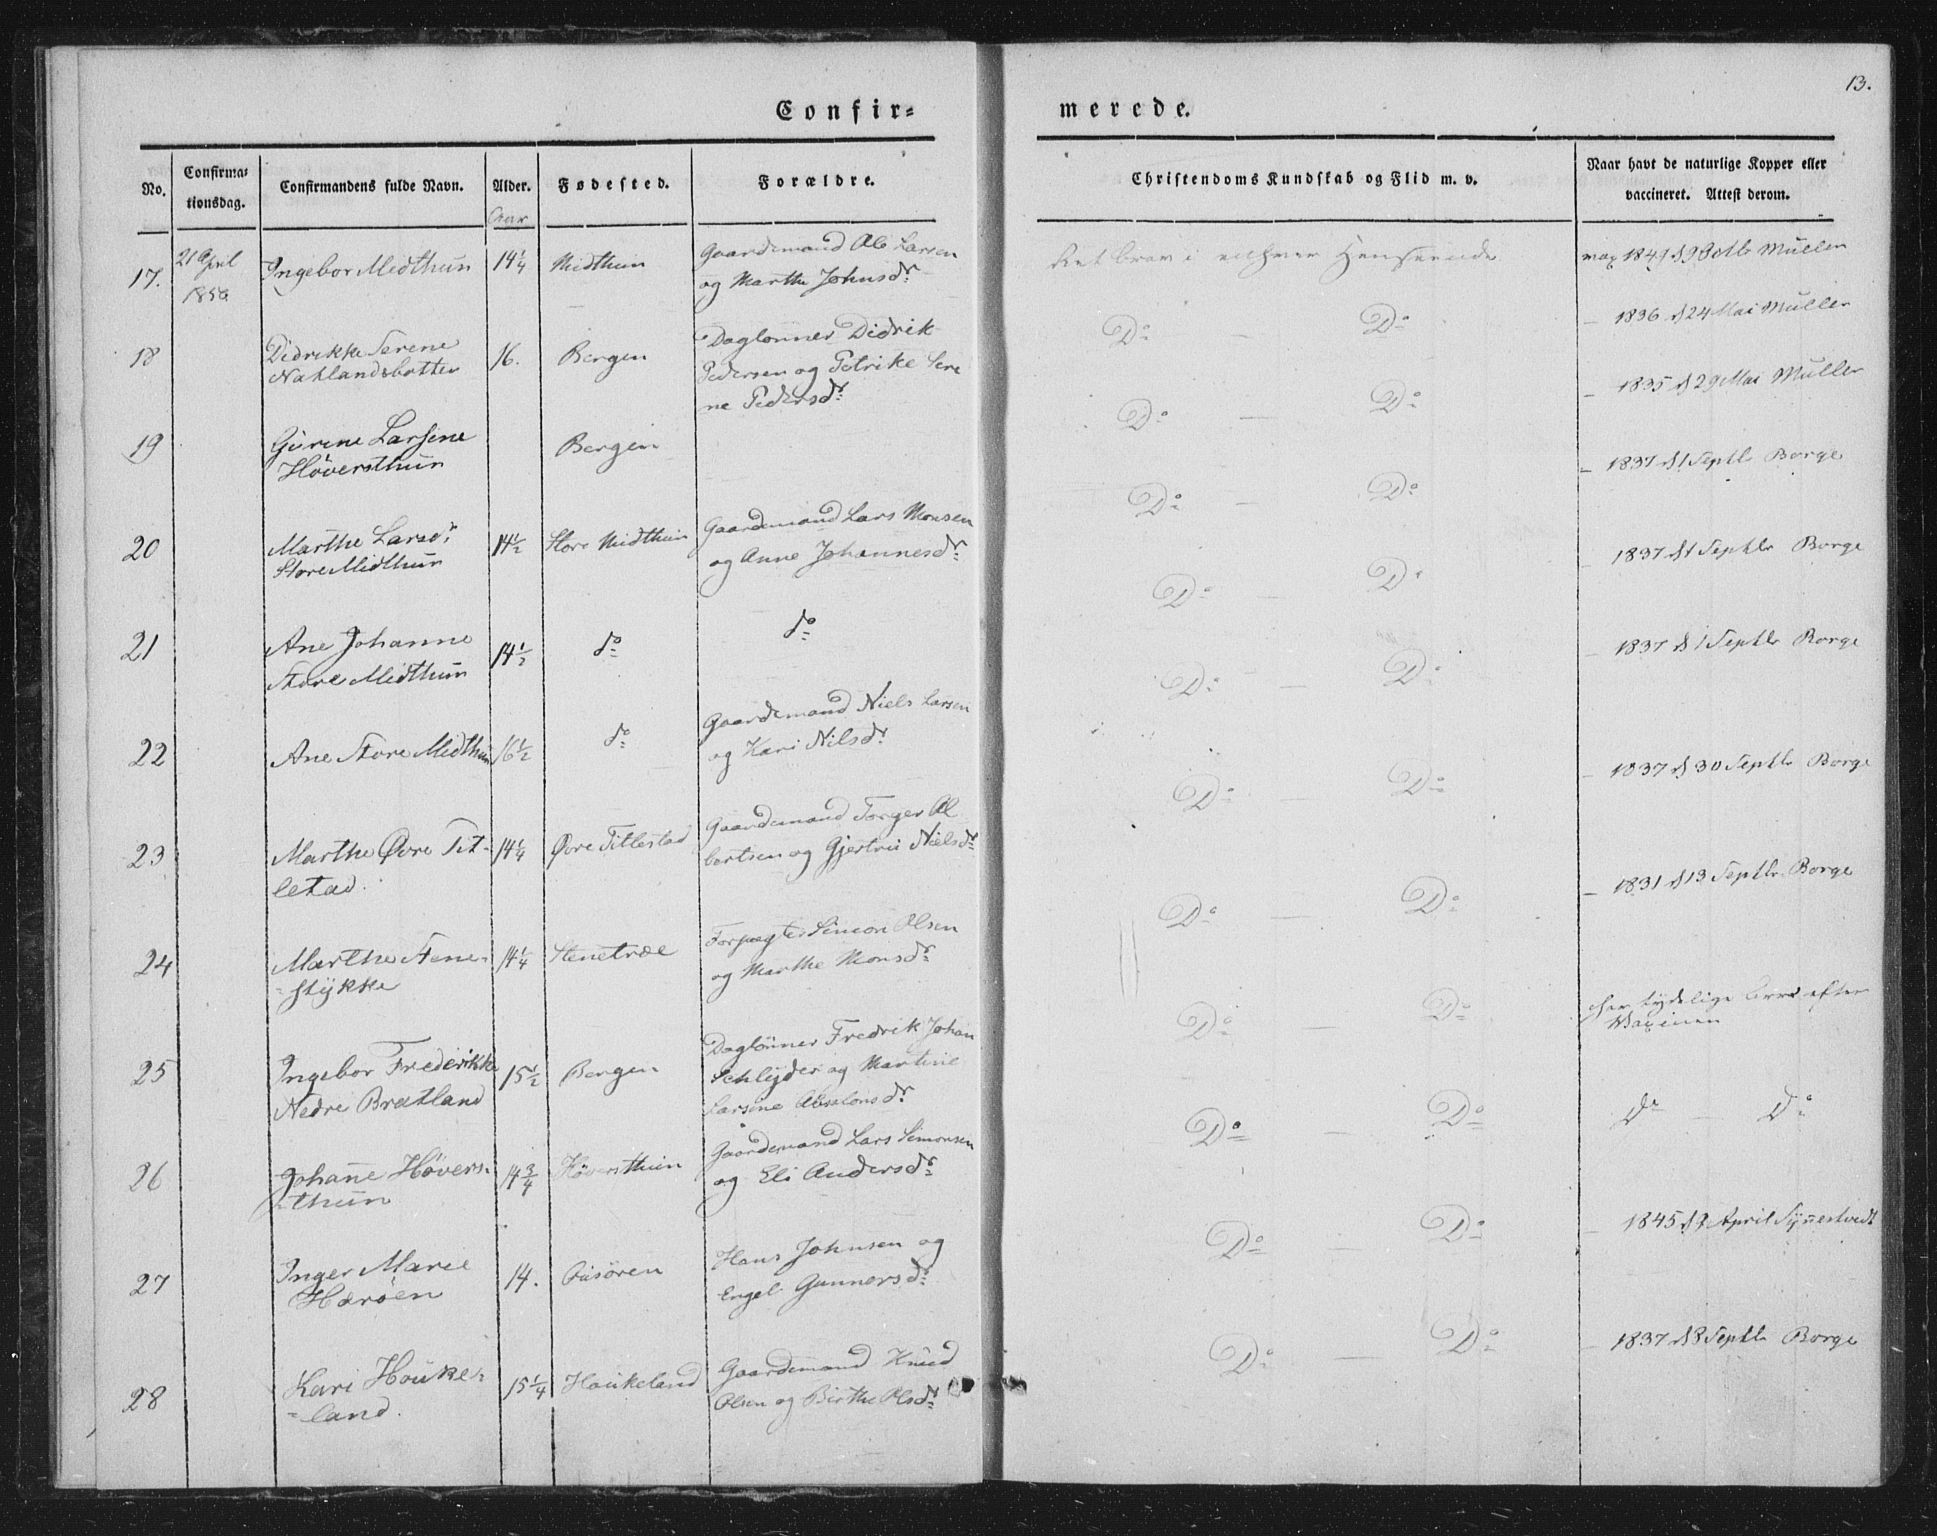 13.
Confir=
merede.
No.
Confirma=
tionsdag.
Confirmandens fulde Navn.
Alder.
Aar
Fødested.
Forældre.
Christendoms Kundskab og Flid m. v.
Naar havt de naturlige Kopper eller
vaccineret. Attest derom.
17.
21 April
Ingebor Midthun
14 1/4
Midthun
Gaardemand Ole Larsen
og Marthe Johnsdr.
i enhver Henseende
Müller
18
Didrikke Serene
Natlandsbotten
16.
Bergen
Daglønner Didrik
Pedersen og Petrike Sere
ne Pedersdr.
Do — Do
1836 d 24 Mai Müller
19
Gurine Larsene
Høversthun
Bergen
Do — Do
1835 d 29 Mai Müller
20
Marthe Larsdr.
Store Midthun
14 1/2
Store Midthun
Gaardemand Lars Monsen
og Anne Johannesdr.
Do — Do
1837 d 1 Septbr Borge
21
Ane Johanne
Store Midthun
14 1/2
do
do
Do — Do
1837 d 1 Septbr Borge
22
Ane Store Midthun
16 1/2
do
Gaardemand Niels Larsen
og Kari Nilsdr.
Do — Do
1837 d 1 Septbr Borge
23
Marthe Øvre Tit-
lestad.
14 1/4
Øvre Titlestad
Gaardemand Torger Al
bertsen og Gjertru Nielsdr.
Do — Do
1837 d 30 Septbr Borge
24
Marthe Stene-
stykke
14 1/4
Stenetræe
Forpagter Simon Olsen
og Marthe Monsdr.
Do — Do
1831 d 13 Septbr Borge
25
Ingebor Frederikke
Nedre Bratland
15 1/2
Bergen
Daglønner Fredrik Johan
Schlyder og Martine
Larsine Absalonsdr.
Do — Do
har tydelige Arr efter
Vaxinen
26
Johanne Høvers-
thun
14 3/4
Høversthun
Gaardemand Lars Simonsen
og Eli Andersdr.
Do — Do
Do — Do
27
Inger Marie
Harøen
14.
Hans Johnsen og
Engel Gunnersdr.
Do — Do
1845 d 2 April Synnestvedt
28
Kari Houke-
land.
15 1/4
Houkeland
Gaardemand Knud
Olsen og Birthe Olsdr.
Do — Do
1837 d 8 Septbr Borge